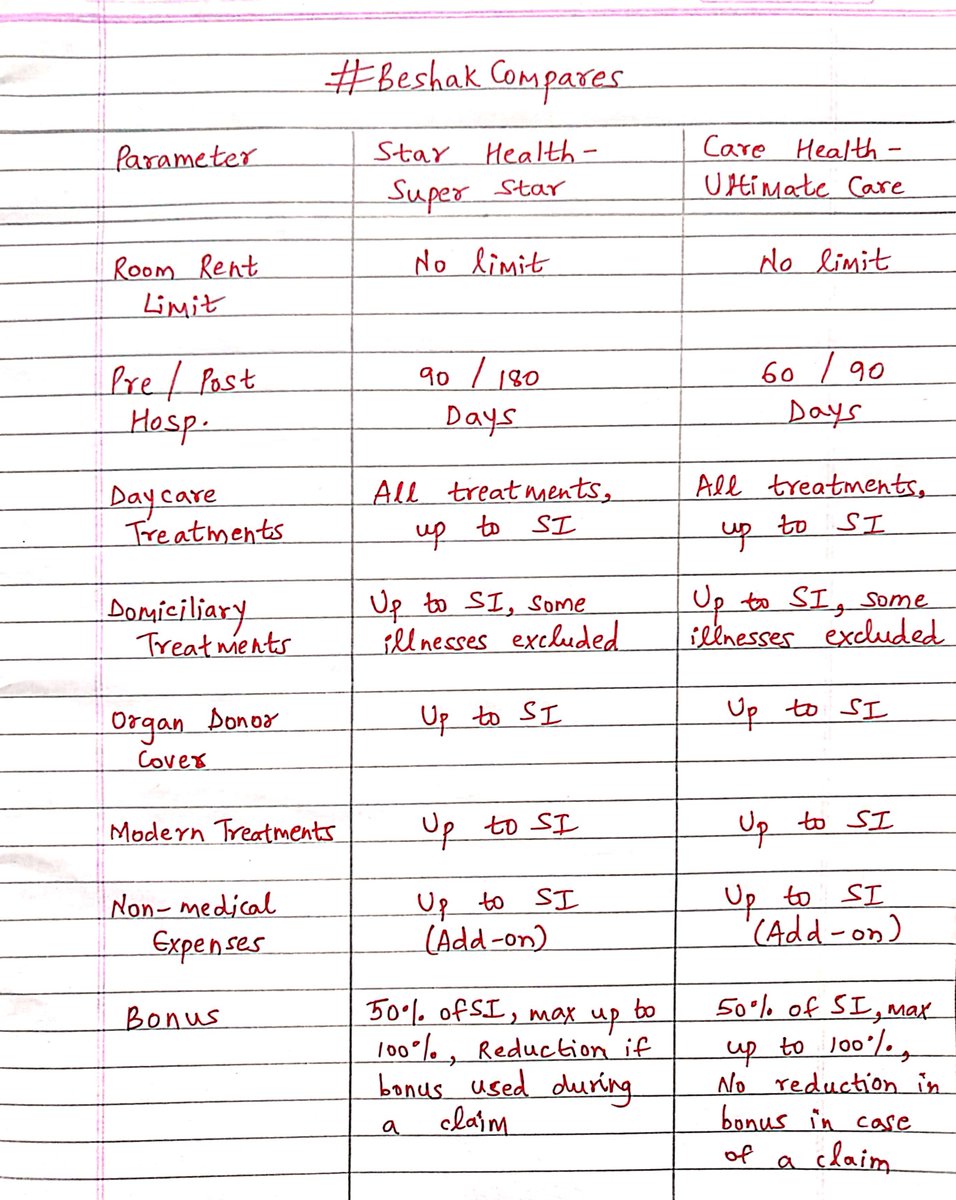 #Beshak Compares
Parameter
Star Health -
Super Star
Care Health -
Ultimate Care
Room Rent
Limit
No limit
No limit
Pre / Post
Hosp.
90 / 180
Days
60 / 90
Days
Daycare
Treatments
All treatments,
up to SI
All treatments,
up to SI
Domiciliary
Treatments
Up to SI, some
illnesses excluded
Up to SI, some
illnesses excluded
Organ Donor
Cover
Up to SI
Up to SI
Modern Treatments
Up to SI
Up to SI
Non-medical
Expenses
Up to SI
(Add-on)
Up to SI
(Add-on)
Bonus
50% of SI, max up to
100%, Reduction if
bonus used during
a claim
50% of SI, max
up to 100%,
No reduction in
bonus in case
of a claim